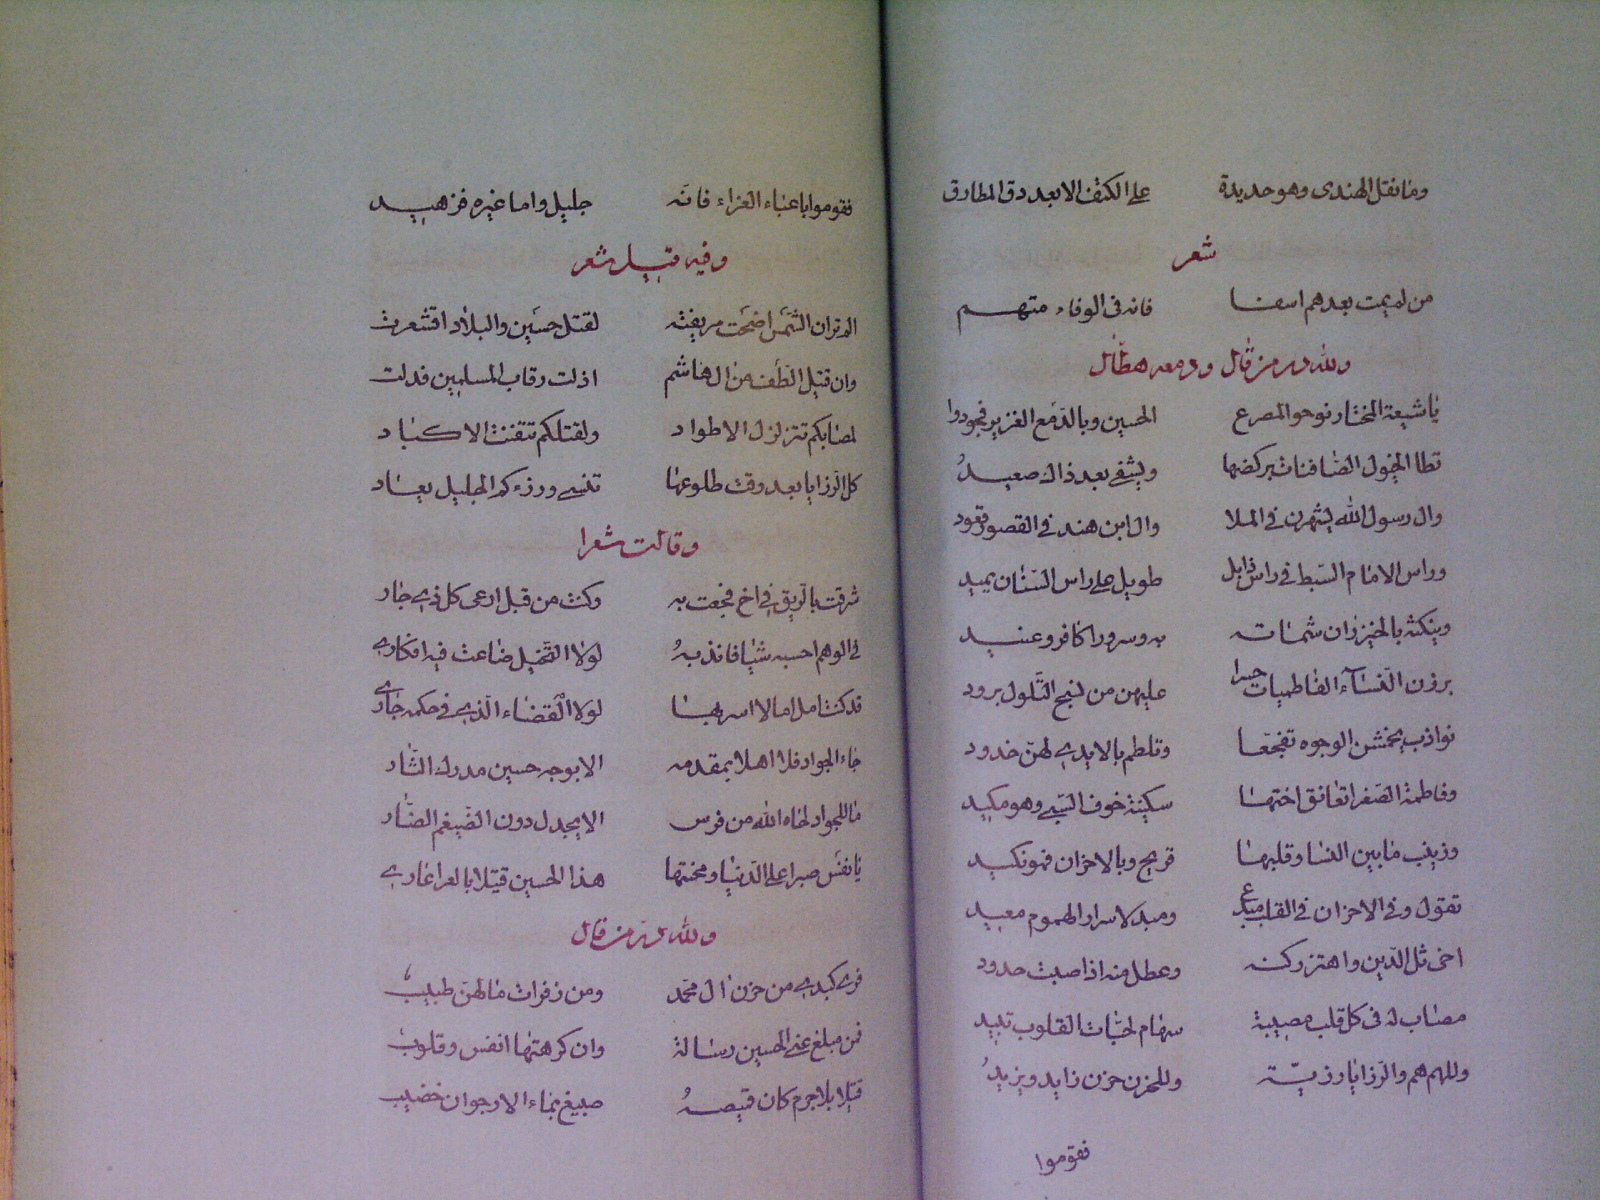 وما نقل الهندى وهو حديدة على الكف الا بعد دق المطارق
شعر
من لم يمت بعدهم اسفا فانه فى الوفاء متهم
ولله در من قال ودمعه هطال
يا شيعة المختار نوحوا لمصرع الحسين وبالدمع الغزير فجودوا
تطا الخيول الصافنات بركضها ويشفى بعد ذاك صعيد
وال رسول الله يشهرن فى الملا وال ابن هند فى القصور قعود
وراس الامام السبط فى راس ذابل طويل على راس السنان يميد
وينكته بالخيزران شماتة به وسرورا كافر وعنيد
برزن النساء الفاطميات حسرا عليهن من نسج الثكول برود
نوادب يخمشن الوجوه تفجعا وتلطم بالايدى لهن خدود
وفاطمة الصغرا تعانق اختها سكينة خوف السبى وهو مكيد
وزينب ما بين النسا وقلبها قريح وبالاحزان فهو نكيد
تقول وفى الاحزان فى القلب مبدع ومبد لاسرار الهموم معيد
اخى ثل الدين واهتز ركنه وعطل منه اذ اصبت حدود
مصاب له فى كل قلب مصيبة سهام لحبات القلوب تبيد
وللهم هم والرزايا رزية وللحزن حزن زايد ويزيد
فقوموا
فقوموا باعباء العزاء فانه جليل واما غيره فزهيد
وفيه قيل شعر
الم تر ان الشمس اضحت مريضة لقتل حسين والبلاد اقشعرت
وان قتيل الطف من ال هاشم اذلت رقاب المسلمين فذلت
لمصابكم تتزلزل الاطواد ولقتلكم تتفتت الاكباد
كل الرزايا بعد وقت طلوعها تنسى ورزءكم الجليل يعاد
وقالت شعرا
شرقت بالريق فى اخ فجعت به وكنت من قبل ارعى كل ذى جار
فى الوهم احسبه شيا فاندبه لولا التخيل ضاعت فيه افكارى
قد كنت امل امالا اسر بها لولا القضاء الذى فى حكمه جارى
جاء الجواد فلا اهلا بمقدمه الا بوجه حسين مدرك الثار
ما للجواد لحاه الله من فرس الا يجدل دون الضيغم الضار
يا نفس صبرا على الدنيا ومحنتها هذا الحسين قتيلا بالعرا عارى
ولله در من قال
فرى كبدى من حزن ال محمد ومن زفرات ما لهن طبيب
فمن مبلغ عنى الحسين رسالة وان كرهتها انفس وقلوب
قتيلا بلا جرم كان قميصه صبيغ بماء الارجوان خضيب